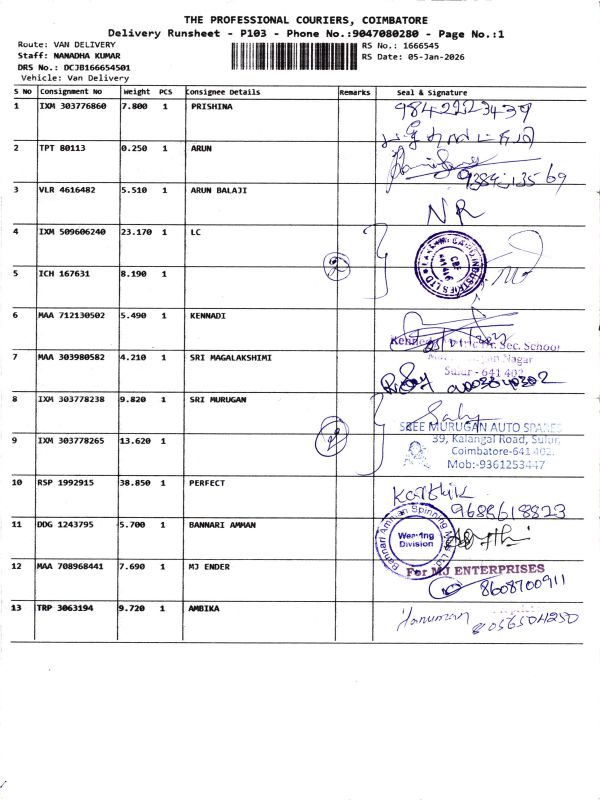 THE PROFESSIONAL COURIERS, COIMBATORE
Delivery Runsheet - P103 - Phone No.:9047080280 - Page No.:1
Route: VAN DELIVERY
RS No.: 1666545
Staff: NANADHA KUMAR
RS Date: 05-Jan-2026
DRS No.: DCJB166654501
Vehicle: Van Delivery
S NO Consignment No Weight PCS Consignee Details Remarks Seal & Signature
1 IXM 303776860 7.800 1 PRISHINA 9842223439
2 TPT 80113 0.250 1 ARUN
3 VLR 4616482 5.510 1 ARUN BALAJI NR
4 IXM 509606240 23.170 1 LC
5 ICH 167631 8.190 1
6 MAA 712130502 5.490 1 KENNADI
Sec. School
Nagar
Sulur - 641 402
7 MAA 303980582 4.210 1 SRI MAGALAKSHIMI
8 IXM 303778238 9.820 1 SRI MURUGAN
SREE MURUGAN AUTO SPARES
39, Kalangal Road, Sulur,
Coimbatore-641 402.
Mob:-9361253447
9 IXM 303778265 13.620 1
10 RSP 1992915 38.850 1 PERFECT Karthik
9688618823
11 DDG 1243795 5.700 1 BANNARI AMMAN
Bannari Amman Spinning Mills Ltd
Weaving
Division
12 MAA 708968441 7.690 1 MJ ENDER
For MJ ENTERPRISES
8608700911
13 TRP 3063194 9.720 1 AMBIKA